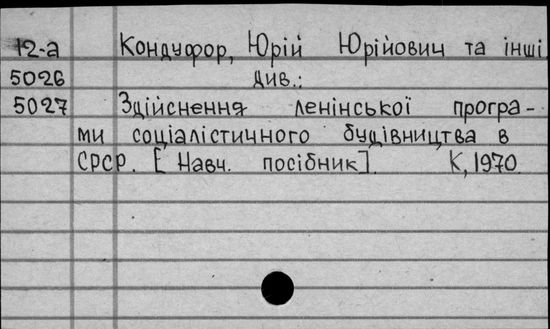 12-а Кондуфор, Юрій Юрійович та інші
5026 див.:
5027 Здійснення ленінської програ-
ми соціалістичного будівництва в
СРСР. [Навч. посібник]. К, 1970